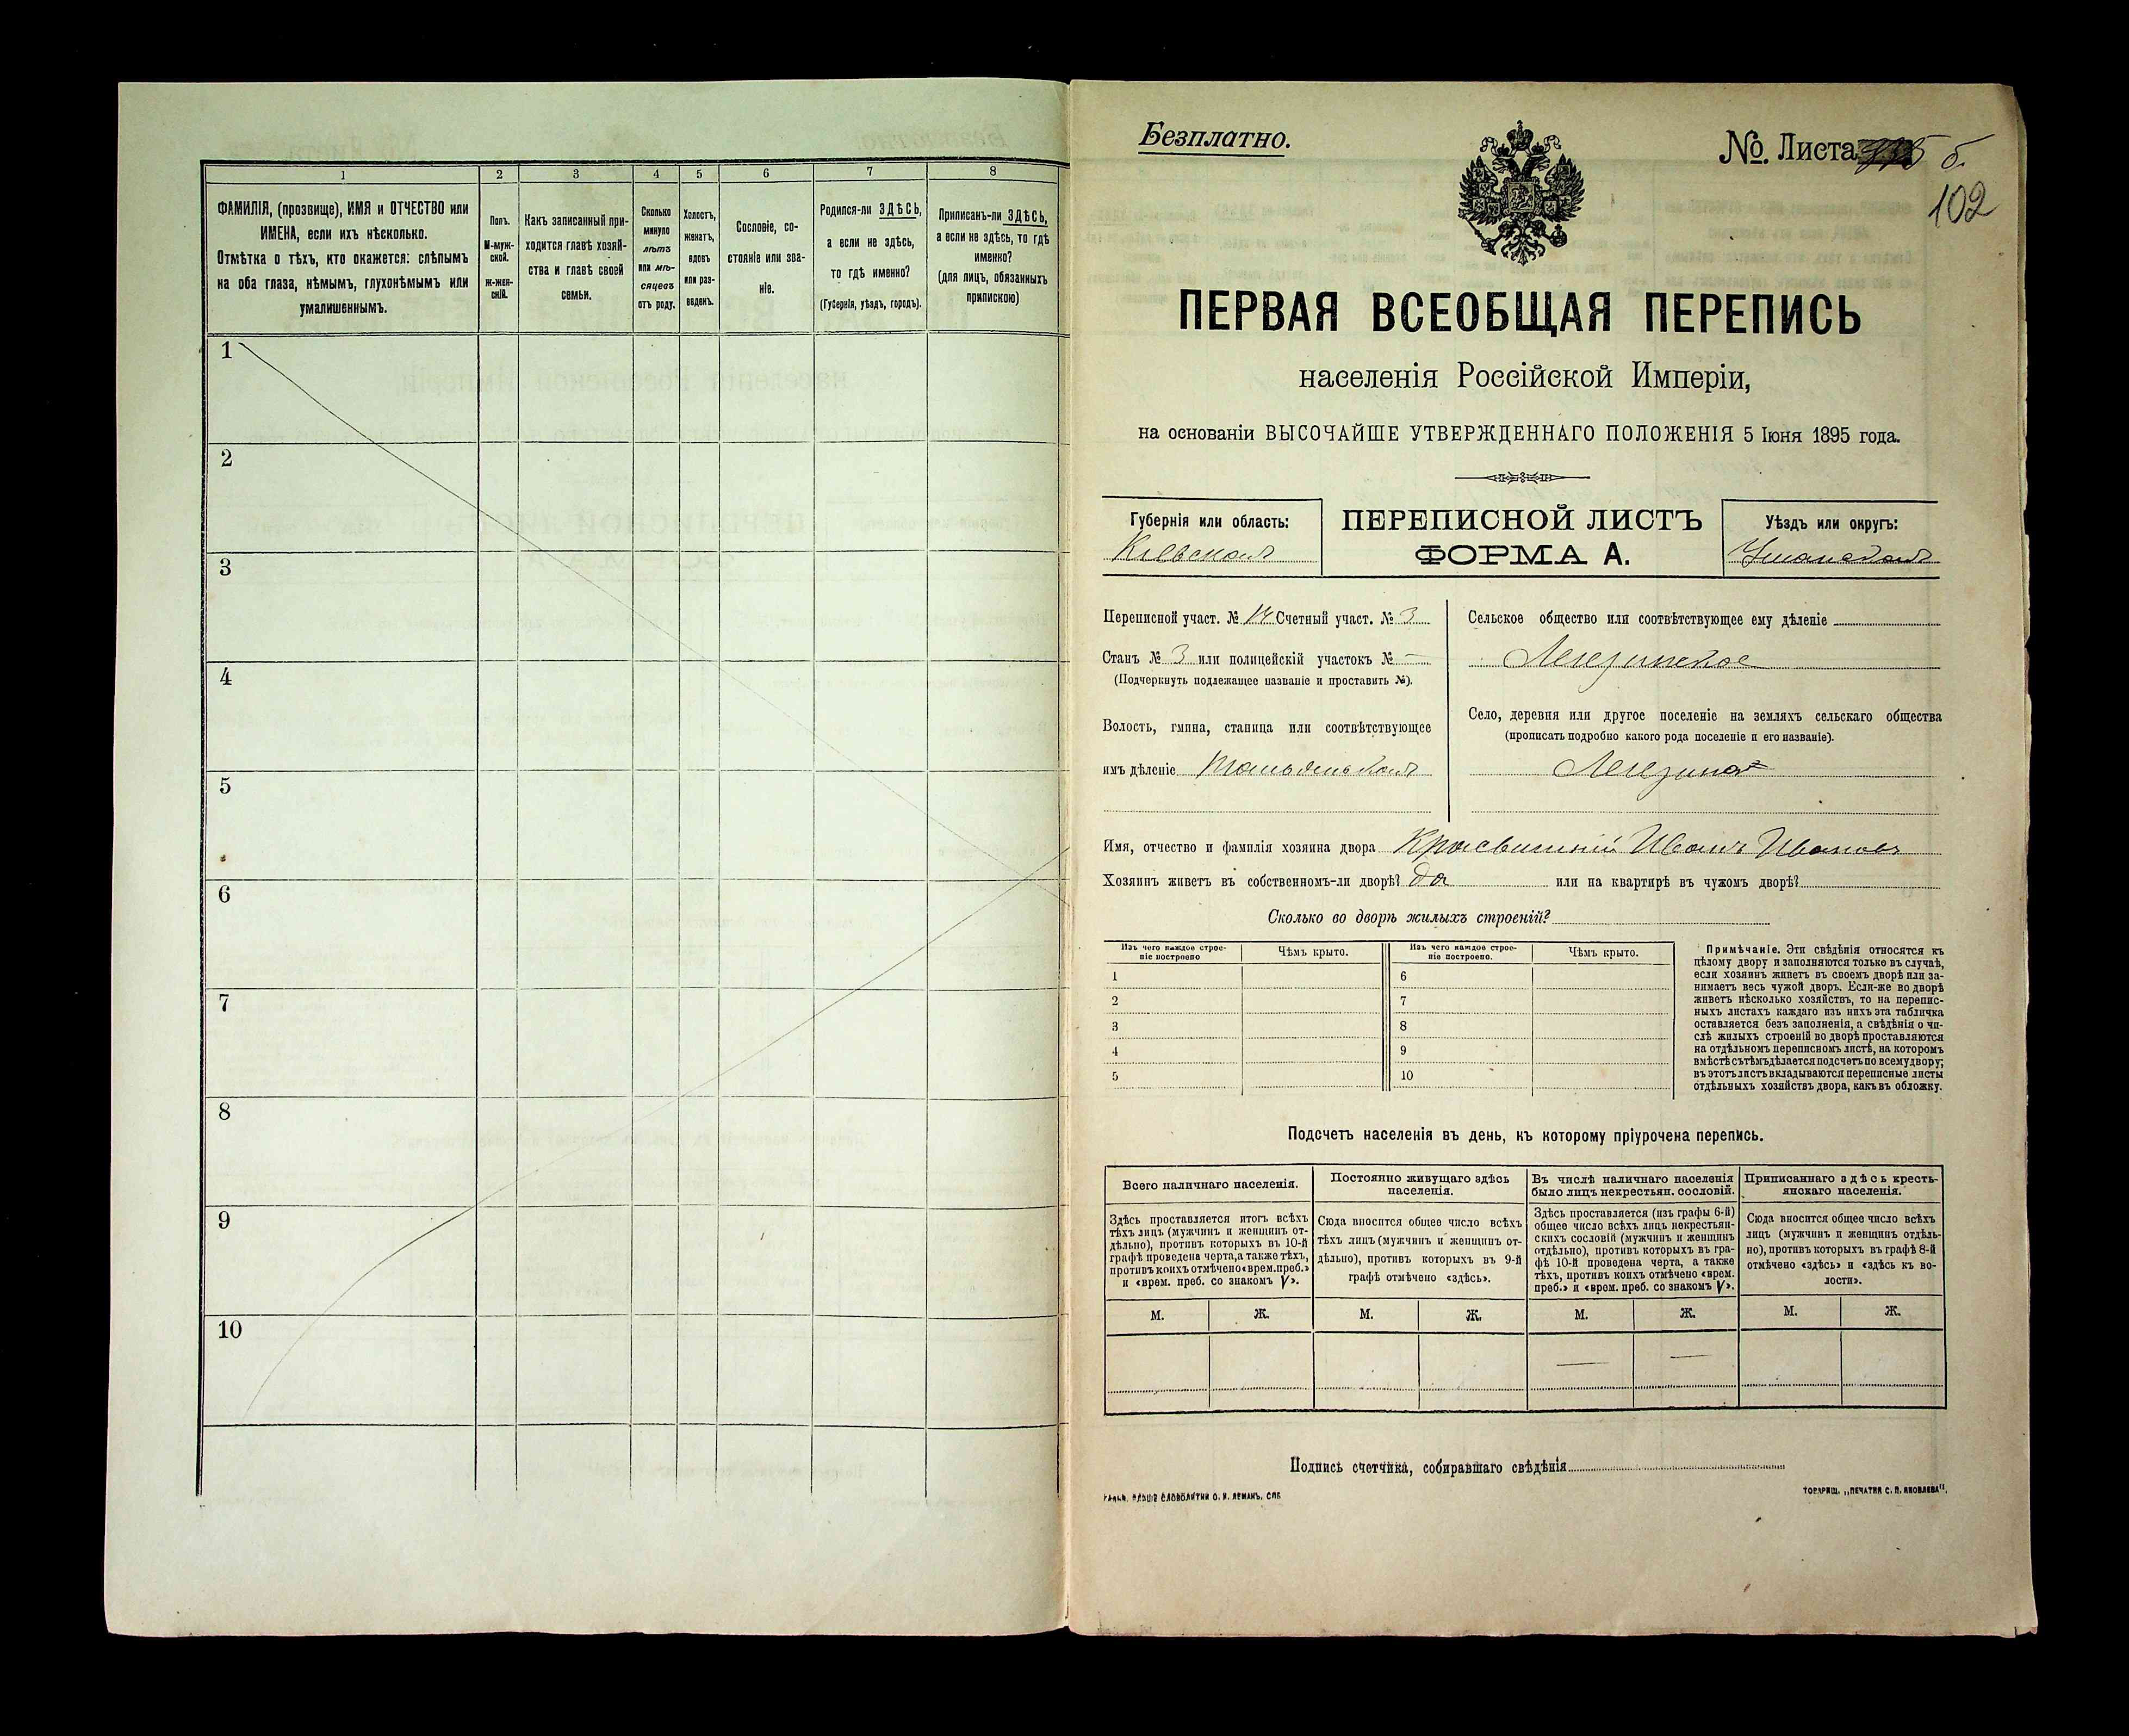 1
2
3
4
5
6
7
8
ФАМИЛІЯ, (прозвище), ИМЯ и ОТЧЕСТВО или
ИМЕНА, если ихъ нѣсколько.
Отмѣтка о тѣхъ, кто окажется: слѣпымъ
на оба глаза, нѣмымъ, глухонѣмымъ или
умалишеннымъ.
Полъ.
М-муж-
ской.
Ж-жен-
скій.
Какъ записанный при-
ходится главѣ хозяй-
ства и главѣ своей
семьи.
Сколько
минуло
лѣтъ
или мѣ-
сяцевъ
отъ роду.
Холостъ,
женатъ,
вдовъ
или раз-
веденъ.
Сословіе, со-
стояніе или зва-
ніе.
Родился-ли ЗДѢСЬ,
а если не здѣсь,
то гдѣ именно?
(Губернія, уѣздъ, городъ).
Приписанъ-ли ЗДѢСЬ,
а если не здѣсь, то гдѣ
именно?
(для лицъ, обязанныхъ
припискою)
1
2
3
4
5
6
7
8
9
10
Безплатно.
№. Листа б.
102
ПЕРВАЯ ВСЕОБЩАЯ ПЕРЕПИСЬ
населенія Россійской Имперіи,
на основаніи ВЫСОЧАЙШЕ УТВЕРЖДЕННАГО ПОЛОЖЕНІЯ 5 Іюня 1895 года.
Губернія или область:
Кіевская
ПЕРЕПИСНОЙ ЛИСТЪ
ФОРМА А.
Уѣздъ или округъ:
Уманскій
Переписной участ. № 14 Счетный участ. № 3
Станъ № 3 или полицейскій участокъ № —
(Подчеркнуть подлежащее названіе и проставить №).
Волость, гмина, станица или соотвѣтствующее
имъ дѣленіе Тальянская
Сельское общество или соотвѣтствующее ему дѣленіе
Легезинское
Село, деревня или другое поселеніе на земляхъ сельскаго общества
(прописать подробно какого рода поселеніе и его названіе).
Легезина
Имя, отчество и фамилія хозяина двора Иванъ Ивановъ
Хозяинъ живетъ въ собственномъ-ли дворѣ? да или на квартирѣ въ чужомъ дворѣ?
Сколько во дворѣ жилыхъ строеній?
Изъ чего каждое строе-
ніе построено
Чѣмъ крыто.
Изъ чего каждое строе-
ніе построено.
Чѣмъ крыто.
1
6
2
7
3
8
4
9
5
10
Примѣчаніе. Эти свѣдѣнія относятся къ
цѣлому двору и заполняются только въ случаѣ,
если хозяинъ живетъ въ своемъ дворѣ или за-
нимаетъ весь чужой дворъ. Если-же во дворѣ
живетъ нѣсколько хозяйствъ, то на перепис-
ныхъ листахъ каждаго изъ нихъ эта табличка
оставляется безъ заполненія, а свѣдѣнія о чи-
слѣ жилыхъ строеній во дворѣ проставляются
на отдѣльномъ переписномъ листѣ, на которомъ
вмѣстѣ съ тѣмъ дѣлается подсчетъ по всему двору;
въ этотъ листъ вкладываются переписные листы
отдѣльныхъ хозяйствъ двора, какъ въ обложку.
Подсчетъ населенія въ день, къ которому пріурочена перепись.
Всего наличнаго населенія.
Постоянно живущаго здѣсь
населенія.
Въ числѣ наличнаго населенія
было лицъ некрестьян. сословій.
Приписаннаго здѣсь кресть-
янскаго населенія.
Здѣсь проставляется итогъ всѣхъ
тѣхъ лицъ (мужчинъ и женщинъ от-
дѣльно), противъ которыхъ въ 10-й
графѣ проведена черта, а также тѣхъ,
противъ коихъ отмѣчено «врем. преб.»
и «врем. преб. со знакомъ V».
Сюда вносится общее число всѣхъ
тѣхъ лицъ (мужчинъ и женщинъ от-
дѣльно), противъ которыхъ въ 9-й
графѣ отмѣчено «здѣсь».
Здѣсь проставляется (изъ графы 6-й)
общее число всѣхъ лицъ некрестьян-
скихъ сословій (мужчинъ и женщинъ
отдѣльно), противъ которыхъ въ гра-
фѣ 10-й проведена черта, а также
тѣхъ, противъ коихъ отмѣчено «врем.
преб.» и «врем. преб. со знакомъ V».
Сюда вносится общее число всѣхъ
лицъ (мужчинъ и женщинъ отдѣль-
но), противъ которыхъ въ графѣ 8-й
отмѣчено «здѣсь» и «здѣсь къ во-
лости».
М.
Ж.
М.
Ж.
М.
Ж.
М.
Ж.
— —
Подпись счетчика, собиравшаго свѣдѣнія
СЛОВОЛИТНИ О. И. ЛЕМАНЪ, СПБ
ТОВАРИЩ. „ПЕЧАТНЯ С. П. ЯКОВЛЕВА".